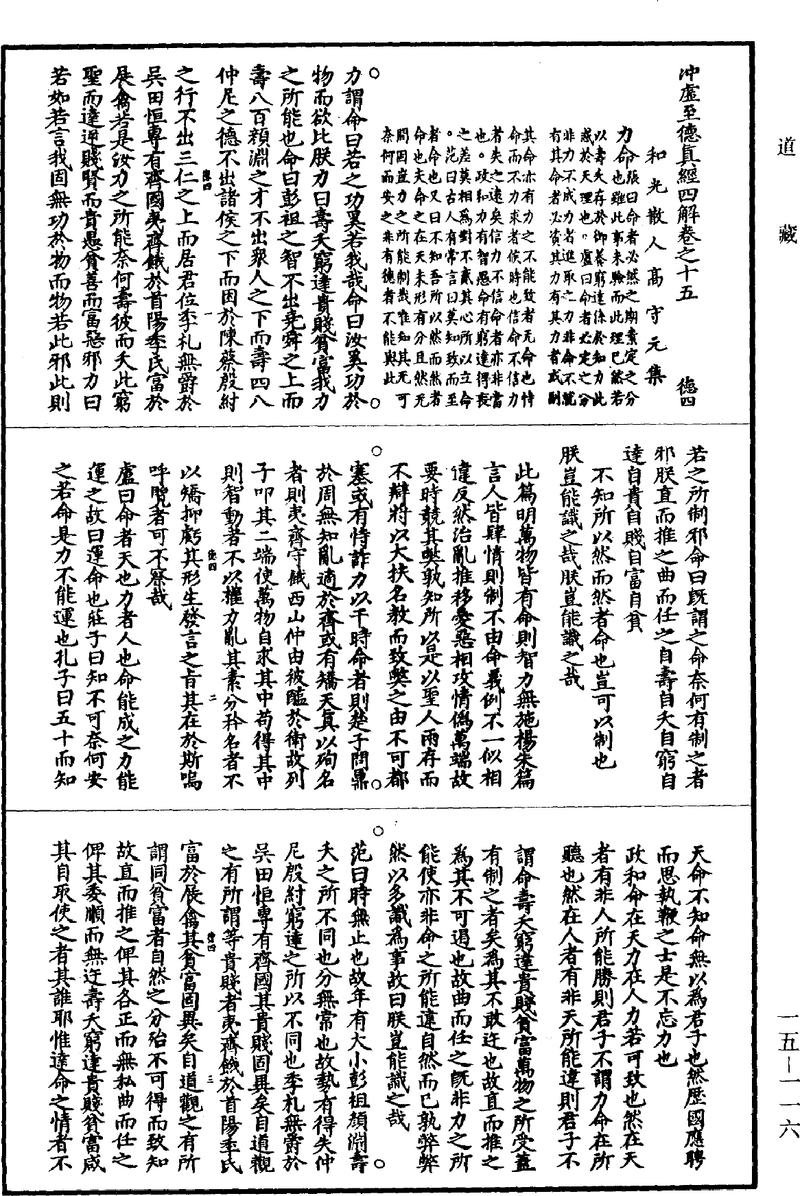 道藏
沖虛至德真經四解卷之十五 德四
和光散人高守元集
力命張曰命者必然之期素定之分
也雖此事未驗而此理已然若
以壽夭存於御養窮達係於知力此
惑於天理也。盧曰命者必定之分
非力不成力者進取之力非命不就
有其命者必資其力有其力者或副
其命亦有力之不能致者无命也恃
命而不力求者候時也信命不信力
者失之遠矣信力不信命者亦非當
也。政和力有智愚命有窮達得喪
之差莫相為對不蔽其心所以立命
。范曰古人有常言曰莫知致而至
者命也又曰不知吾所以然而然者
命也夫命之在天未形有分且然无
間固豈力之所能制哉唯知其无可
奈何而安之非有德者不能與此
力謂命曰若之功奚若我哉命曰汝奚功於
物而欲比朕力曰壽夭窮達貴賤貧富我力
之所能也命曰彭祖之智不出堯舜之上而
壽八百顏淵之才不出衆人之下而壽四八
仲尼之德不出諸侯之下而困於陳蔡殷紂
之行不出三仁之上而居君位季札無爵於
吳田恒專有齊國夷齊餓於首陽季氏富於
展禽若是汝力之所能奈何壽彼而夭此窮
聖而達逆賤賢而貴愚貧善而富惡邪力曰
若如若言我固無功於物而物若此邪此則
若之所制邪命曰既謂之命奈何有制之者
邪朕直而推之曲而任之自壽自夭自窮自
達自貴自賤自富自貧
不知所以然而然者命也豈可以制也
朕豈能識之哉朕豈能識之哉
此篇明萬物皆有命則智力無施楊朱篇
言人皆肆情則制不由命義例不一似相
違反然治亂推移愛惡相攻情僞萬端故
要時競其弊孰知所以是以聖人兩存而
不辯將以大扶名教而致弊之由不可都
塞或有恃詐力以干時命者則楚子問鼎
於周無知亂適於齊或有矯天真以殉名
者則夷齊守餓西山仲由被醢於衛故列
子叩其二端使萬物自求其中苟得其中
則智動者不以權力亂其素分矜名者不
以矯抑虧其形生發言之旨其在於斯嗚
呼覽者可不察哉
盧曰命者天也力者人也命能成之力能
運之故曰運命也莊子曰知不可奈何安
之若命是力不能運也孔子曰五十而知
天命不知命無以為君子也然歷國應聘
而思執鞭之士是不忘力也
政和命在天力在人力若可致也然在天
者有非人所能勝則君子不謂力命在所
聽也然在人者有非天所能違則君子不
謂命壽夭窮達貴賤貧富萬物之所受蓋
有制之者矣為其不敢迕也故直而推之
為其不可遏也故曲而任之既非力之所
能使亦非命之所能違自然而已孰弊弊
然以多識為事故曰朕豈能識之哉
范曰時無止也故年有大小彭祖顏淵壽
夭之所不同也分無常也故勢有得失仲
尼殷紂窮達之所以不同也季札無爵於
吳田恒專有齊國其貴賤固異矣自道觀
之有所謂等貴賤者夷齊餓於首陽季氏
富於展禽其貧富固異矣自道觀之有所
謂同貧富者自然之分殆不可得而致知
故直而推之俾其各正而無私曲而任之
俾其委順而無迕壽夭窮達貴賤貧富咸
其自取使之者其誰耶惟達命之情者不
一五—一一六